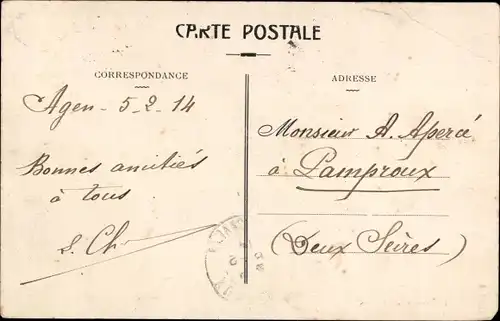 CARTE POSTALE
CORRESPONDANCE
Agen - 5-2-14
Bonnes amitiés
à tous
S. Ch
ADRESSE
Monsieur A. Apercé
à Pamproux
(Deux Sèvres)